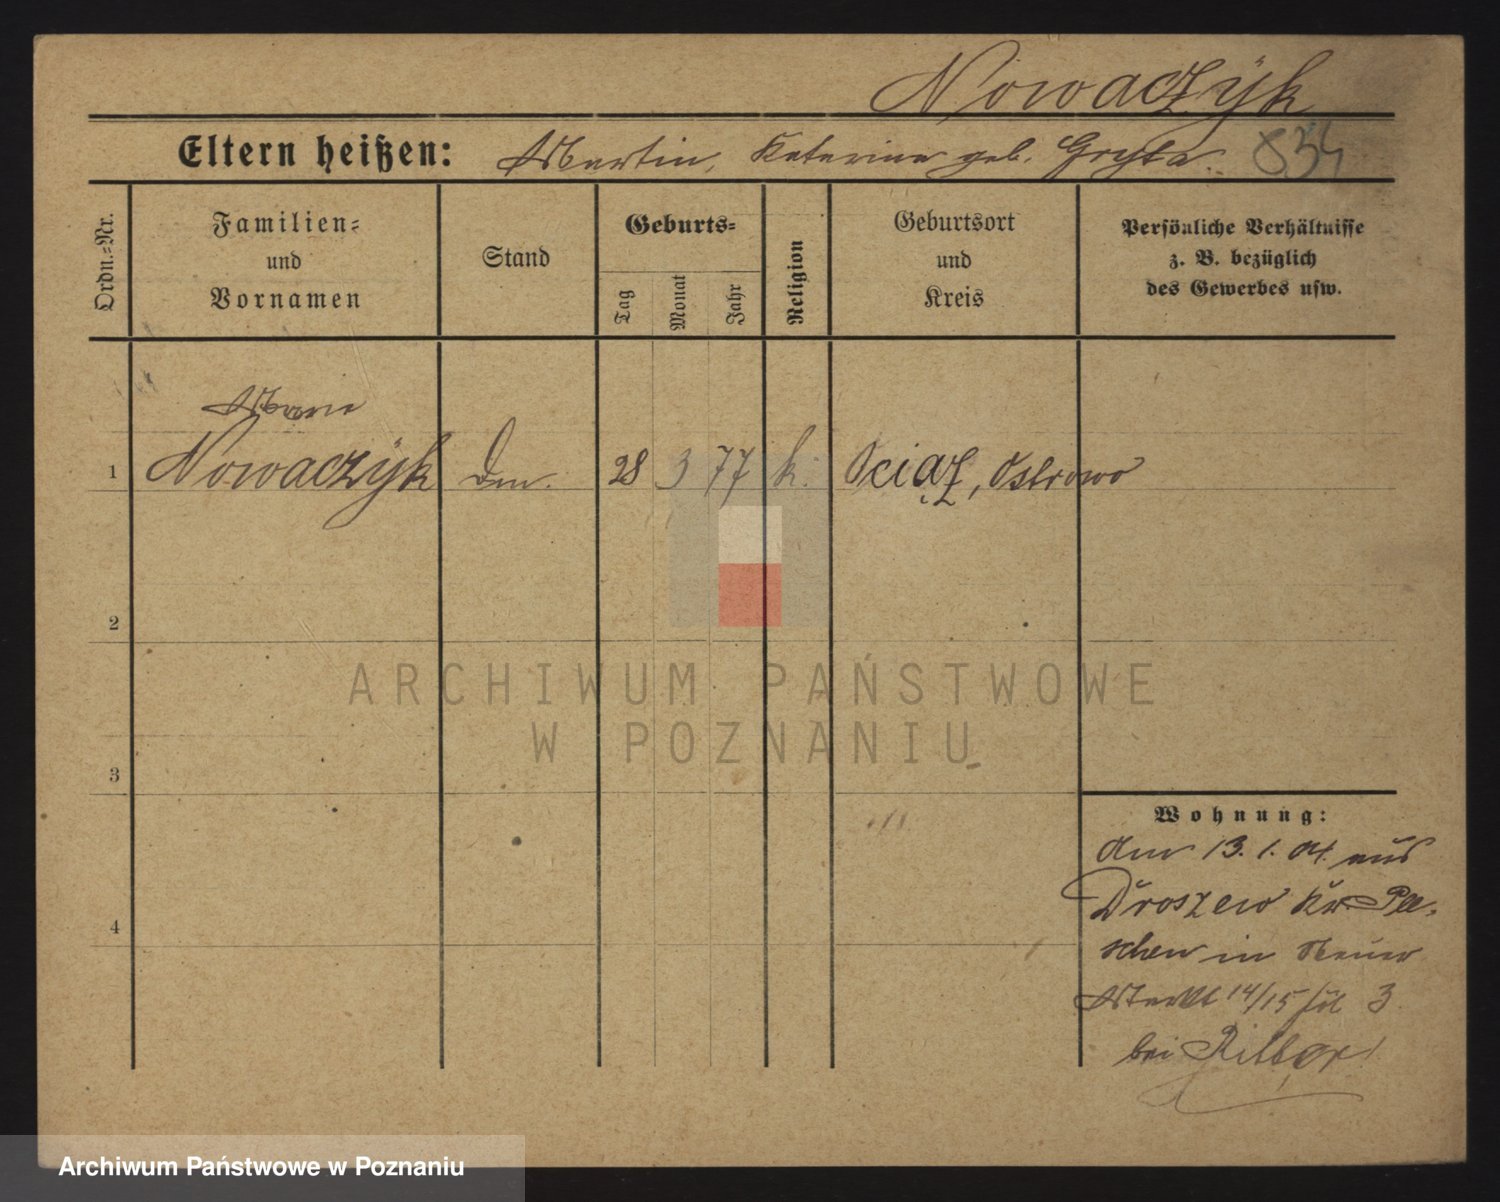 Nowaczÿk
Eltern heißen: Martin, Katarina geb. Gryta. 834
Ordn.-Nr.
Familien-
und
Vornamen
Stand
Geburts-
Tag
Monat
Jahr
Religion
Geburtsort
und
Kreis
Persönliche Verhältnisse
z. B. bezüglich
des Gewerbes usw.
1
Nowaczÿk 28 3 77 k. Ociąż, Ostrowo
2
3
4
Wohnung:
Am 13. 1. 04. aus
Droszew Kr. Ple-
schen in Neuer
Markt 14/15 3
bei
ARCHIWUM PAŃSTWOWE
W POZNANIU
Archiwum Państwowe w Poznaniu